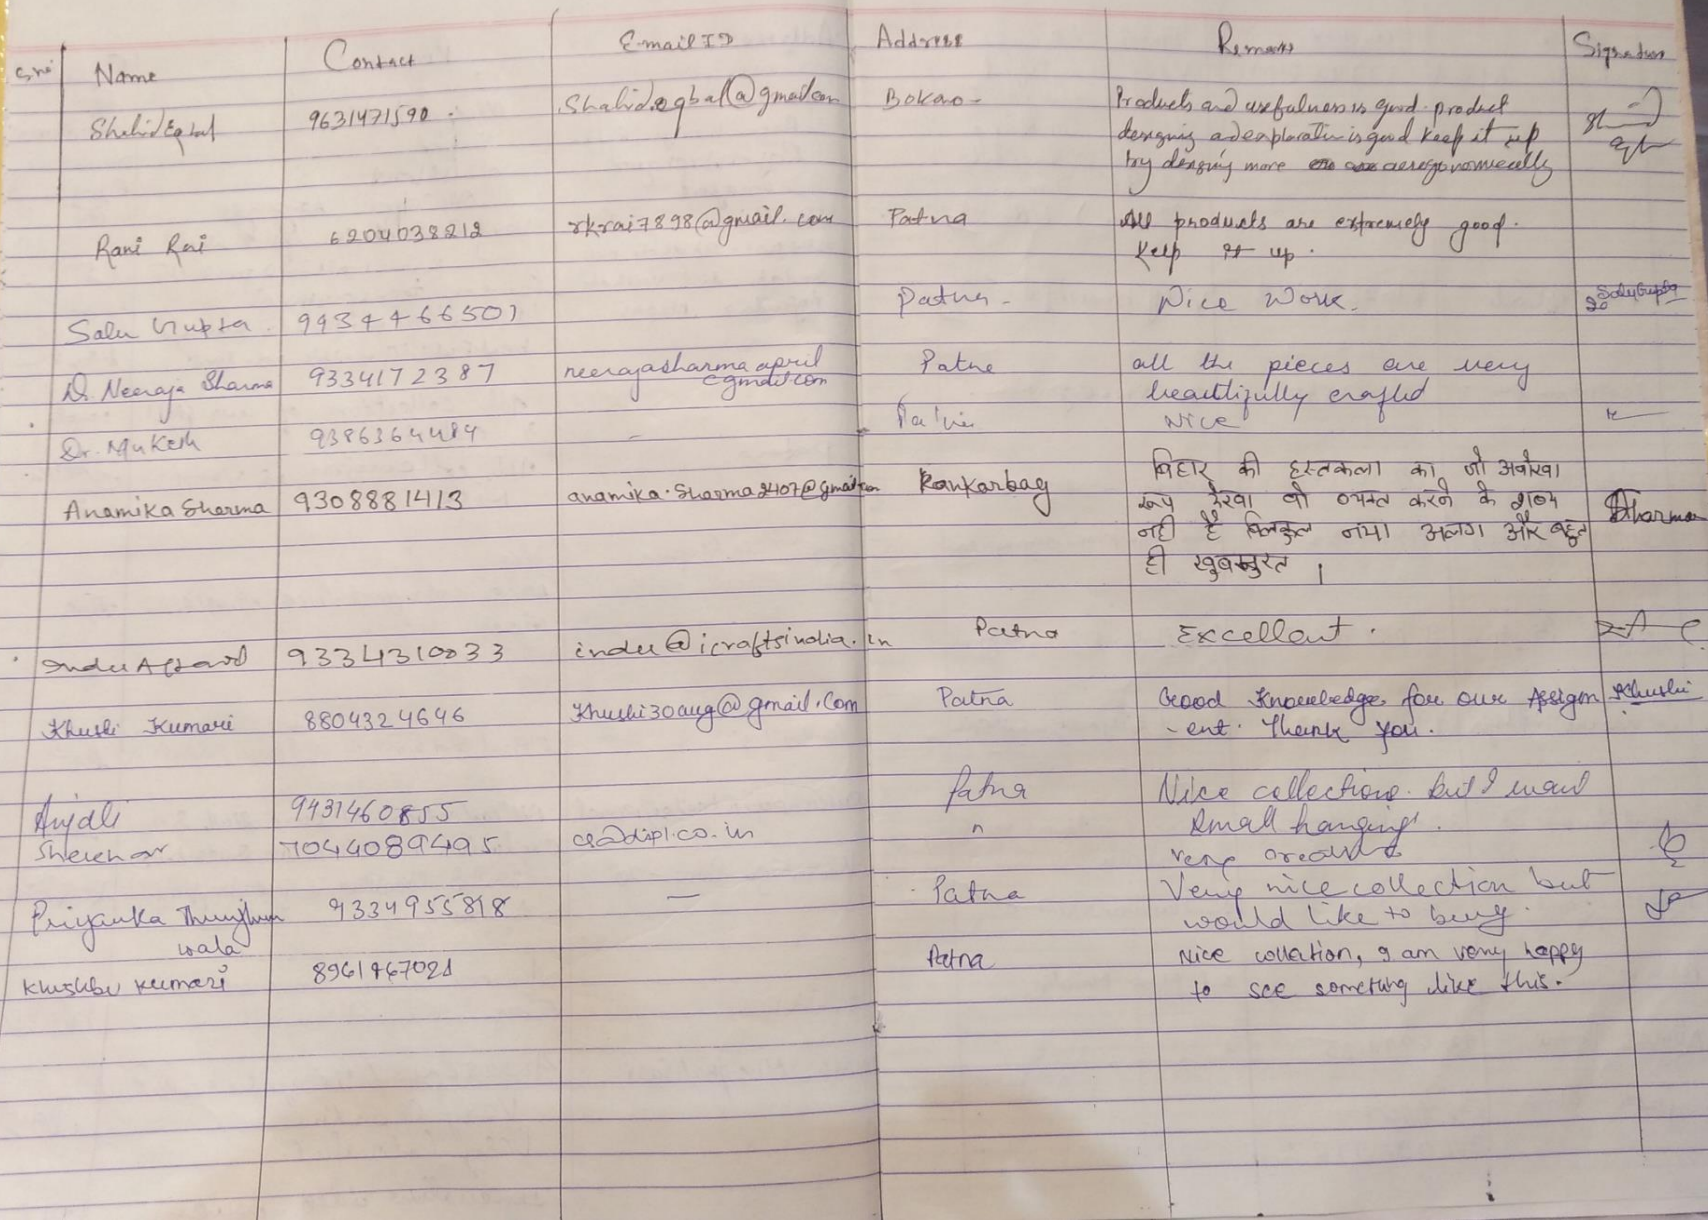 S.no Name Contact Email ID Address Remarks Signature
Shahid Eqbal 9631471590 Shahid.eqbal@gmail.com Bokaro- Products and usefulness is good. product
designing and exploration is good keep it up
try desging more aerogonomically
Rani Rai 6204038212 rkrai7898@gmail.com Patna All products are extremely good.
Keep it up.
Salu Gupta 9934466501 Patna- Nice Work. Salu Gupta
Dr. Neeraja Sharma 9334172387 neerajasharma april Patna all the pieces are very
@gmail.com beautifully crafted
Dr. Mukesh 9386364484 - Patna Nice
Anamika Sharma 9308881413 anamika.sharma2407@gmail.com Kankarbag बिहार की हस्तकला का जो अनोखा
रूप रेखा वो व्यक्त करने के शब्द Sharma
नही है बिलकुल नया अलग और बहुत
ही खुबसुरत ।
Indu 9334310033 indu@icraftsindia.in Patna Excellent.
Khushi Kumari 8804324646 Khushi30aug@gmail.com Patna Good Knowledge for our Assigm Khushi
-ent. Thank you.
Anjali 9431460855 Patna Nice collections. but I want
Shekhar 7044089495 ca@dipl.co.in " small hangings.
very
Priyanka 9334955818 — Patna Very nice collection but
wala would like to buy.
Khushbu Kumari 8961467021 Patna Nice collection, I am very happy
to see something like this.